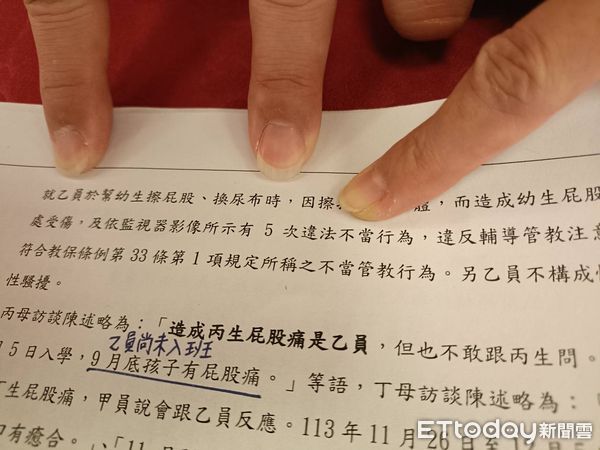 就乙員於幫幼生擦屁股、換尿布時,因擦 體,而造成幼生屁股
處受傷,及依監視器影像所示有 5 次違法不當行為,違反輔導管教注意
符合教保條例第 33 條第 1 項規定所稱之不當管教行為。另乙員不構成
性騷擾。
丙母訪談陳述略為:「造成丙生屁股痛是乙員,但也不敢跟丙生問。
乙員尚未入班
月 5 日入學,9 月底孩子有屁股痛。」等語,丁母訪談陳述略為:「
生屁股痛,甲員說會跟乙員反應。113 年 11 月 26 日至 12 月 5
有癒合。」、「11 月
ETtoday新聞雲